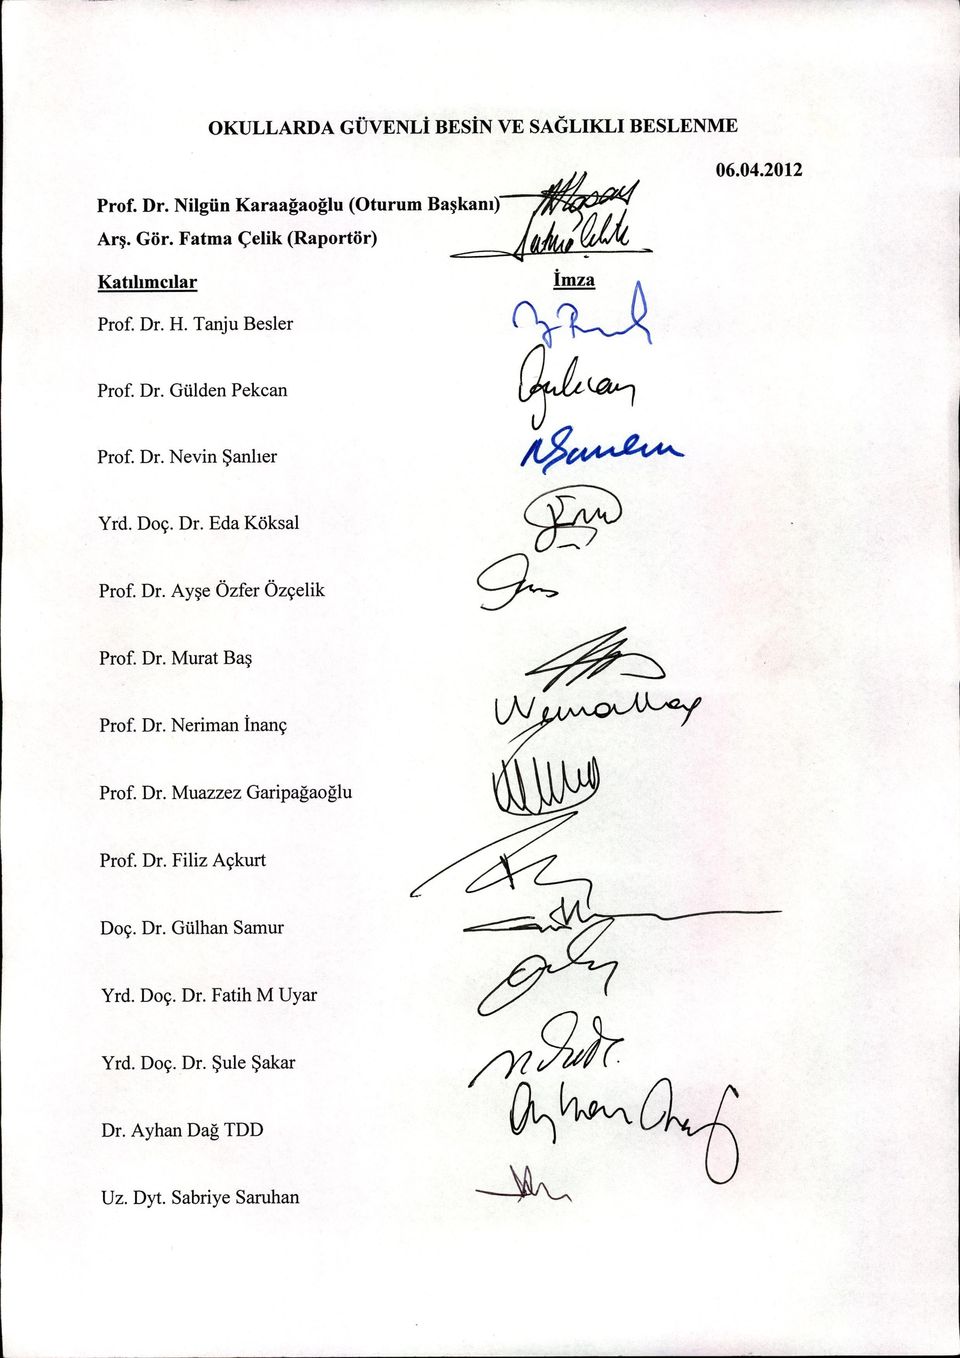 OKULLARDA GÜVENLİ BESİN VE SAĞLIKLI BESLENME
06.04.2012
Prof. Dr. Nilgün Karaağaoğlu (Oturum Başkanı)
Arş. Gör. Fatma Çelik (Raportör) Fatma Çelik
Katılımcılar İmza
Prof. Dr. H. Tanju Besler
Prof. Dr. Gülden Pekcan
Prof. Dr. Nevin Şanlıer
Yrd. Doç. Dr. Eda Köksal
Prof. Dr. Ayşe Özfer Özçelik
Prof. Dr. Murat Baş
Prof. Dr. Neriman İnanç
Prof. Dr. Muazzez Garipağaoğlu
Prof. Dr. Filiz Açkurt
Doç. Dr. Gülhan Samur
Yrd. Doç. Dr. Fatih M Uyar
Yrd. Doç. Dr. Şule Şakar
Dr. Ayhan Dağ TDD Ayhan
Uz. Dyt. Sabriye Saruhan